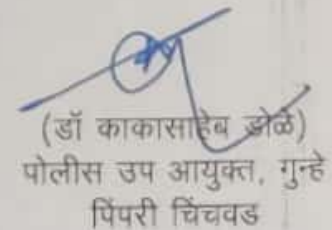 (डॉ काकासाहेब डोळे)
पोलीस उप आयुक्त, गुन्हे
पिंपरी चिंचवड